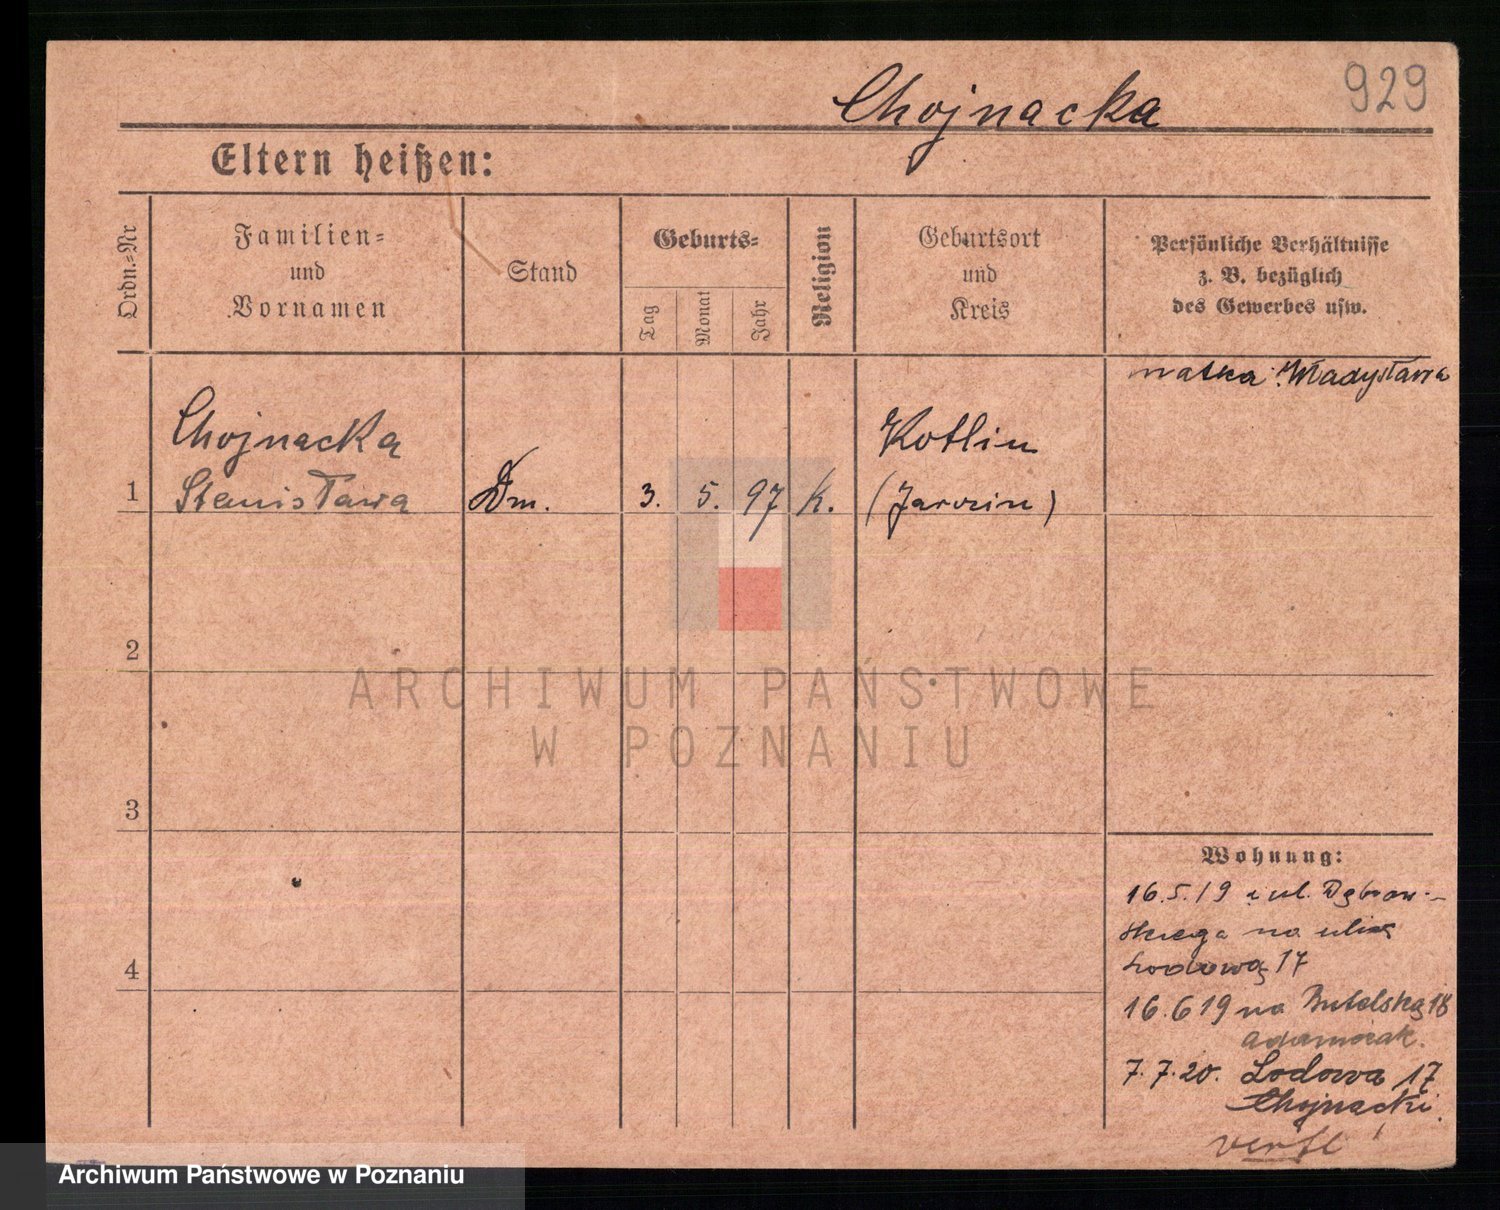 929
Chojnacka
Eltern heißen:
Ordn.-Nr
Familien-
und
Vornamen
Stand
Geburts-
Tag
Monat
Jahr
Religion
Geburtsort
und
Kreis
Persönliche Verhältnisse
z. B. bezüglich
des Gewerbes usw.
matka: Władysława
Chojnacka
Stanisława
1
Dm.
3.
5.
97
k.
Kotlin
(Jarocin)
2
ARCHIWUM PAŃSTWOWE
W POZNANIU
3
4
Wohnung:
16.5.19 z ul. Dąbrow-
skiego na ulicę
Łodową 17
16.6 19 na Butelską 18
Adamczak.
7.7.20. Łodowa 17
Chojnacki.
Archiwum Państwowe w Poznaniu